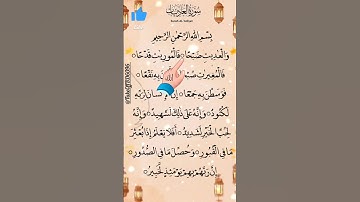 سُورَةُ الْعٰدِيٰتِ
بِسْمِ اللّٰهِ الرَّحْمٰنِ الرَّحِيْمِ
وَالْعٰدِيٰتِ ضَبْحًا فَالْمُوْرِيٰتِ قَدْحًا
فَالْمُغِيْرٰتِ صُبْحًا نَقْعًا
فَوَسَطْنَ بِهٖ جَمْعًا اِنَّ الْاِنْسَانَ لِرَبِّهٖ
لَكَنُوْدٌ وَاِنَّهٗ عَلٰى ذٰلِكَ لَشَهِيْدٌ وَاِنَّهٗ
لِحُبِّ الْخَيْرِ لَشَدِيْدٌ اَفَلَا يَعْلَمُ اِذَا بُعْثِرَ
مَا فِى الْقُبُوْرِ وَحُصِّلَ مَا فِى الصُّدُوْرِ
اِنَّ رَبَّهُمْ بِهِمْ يَوْمَئِذٍ لَّخَبِيْرٌ